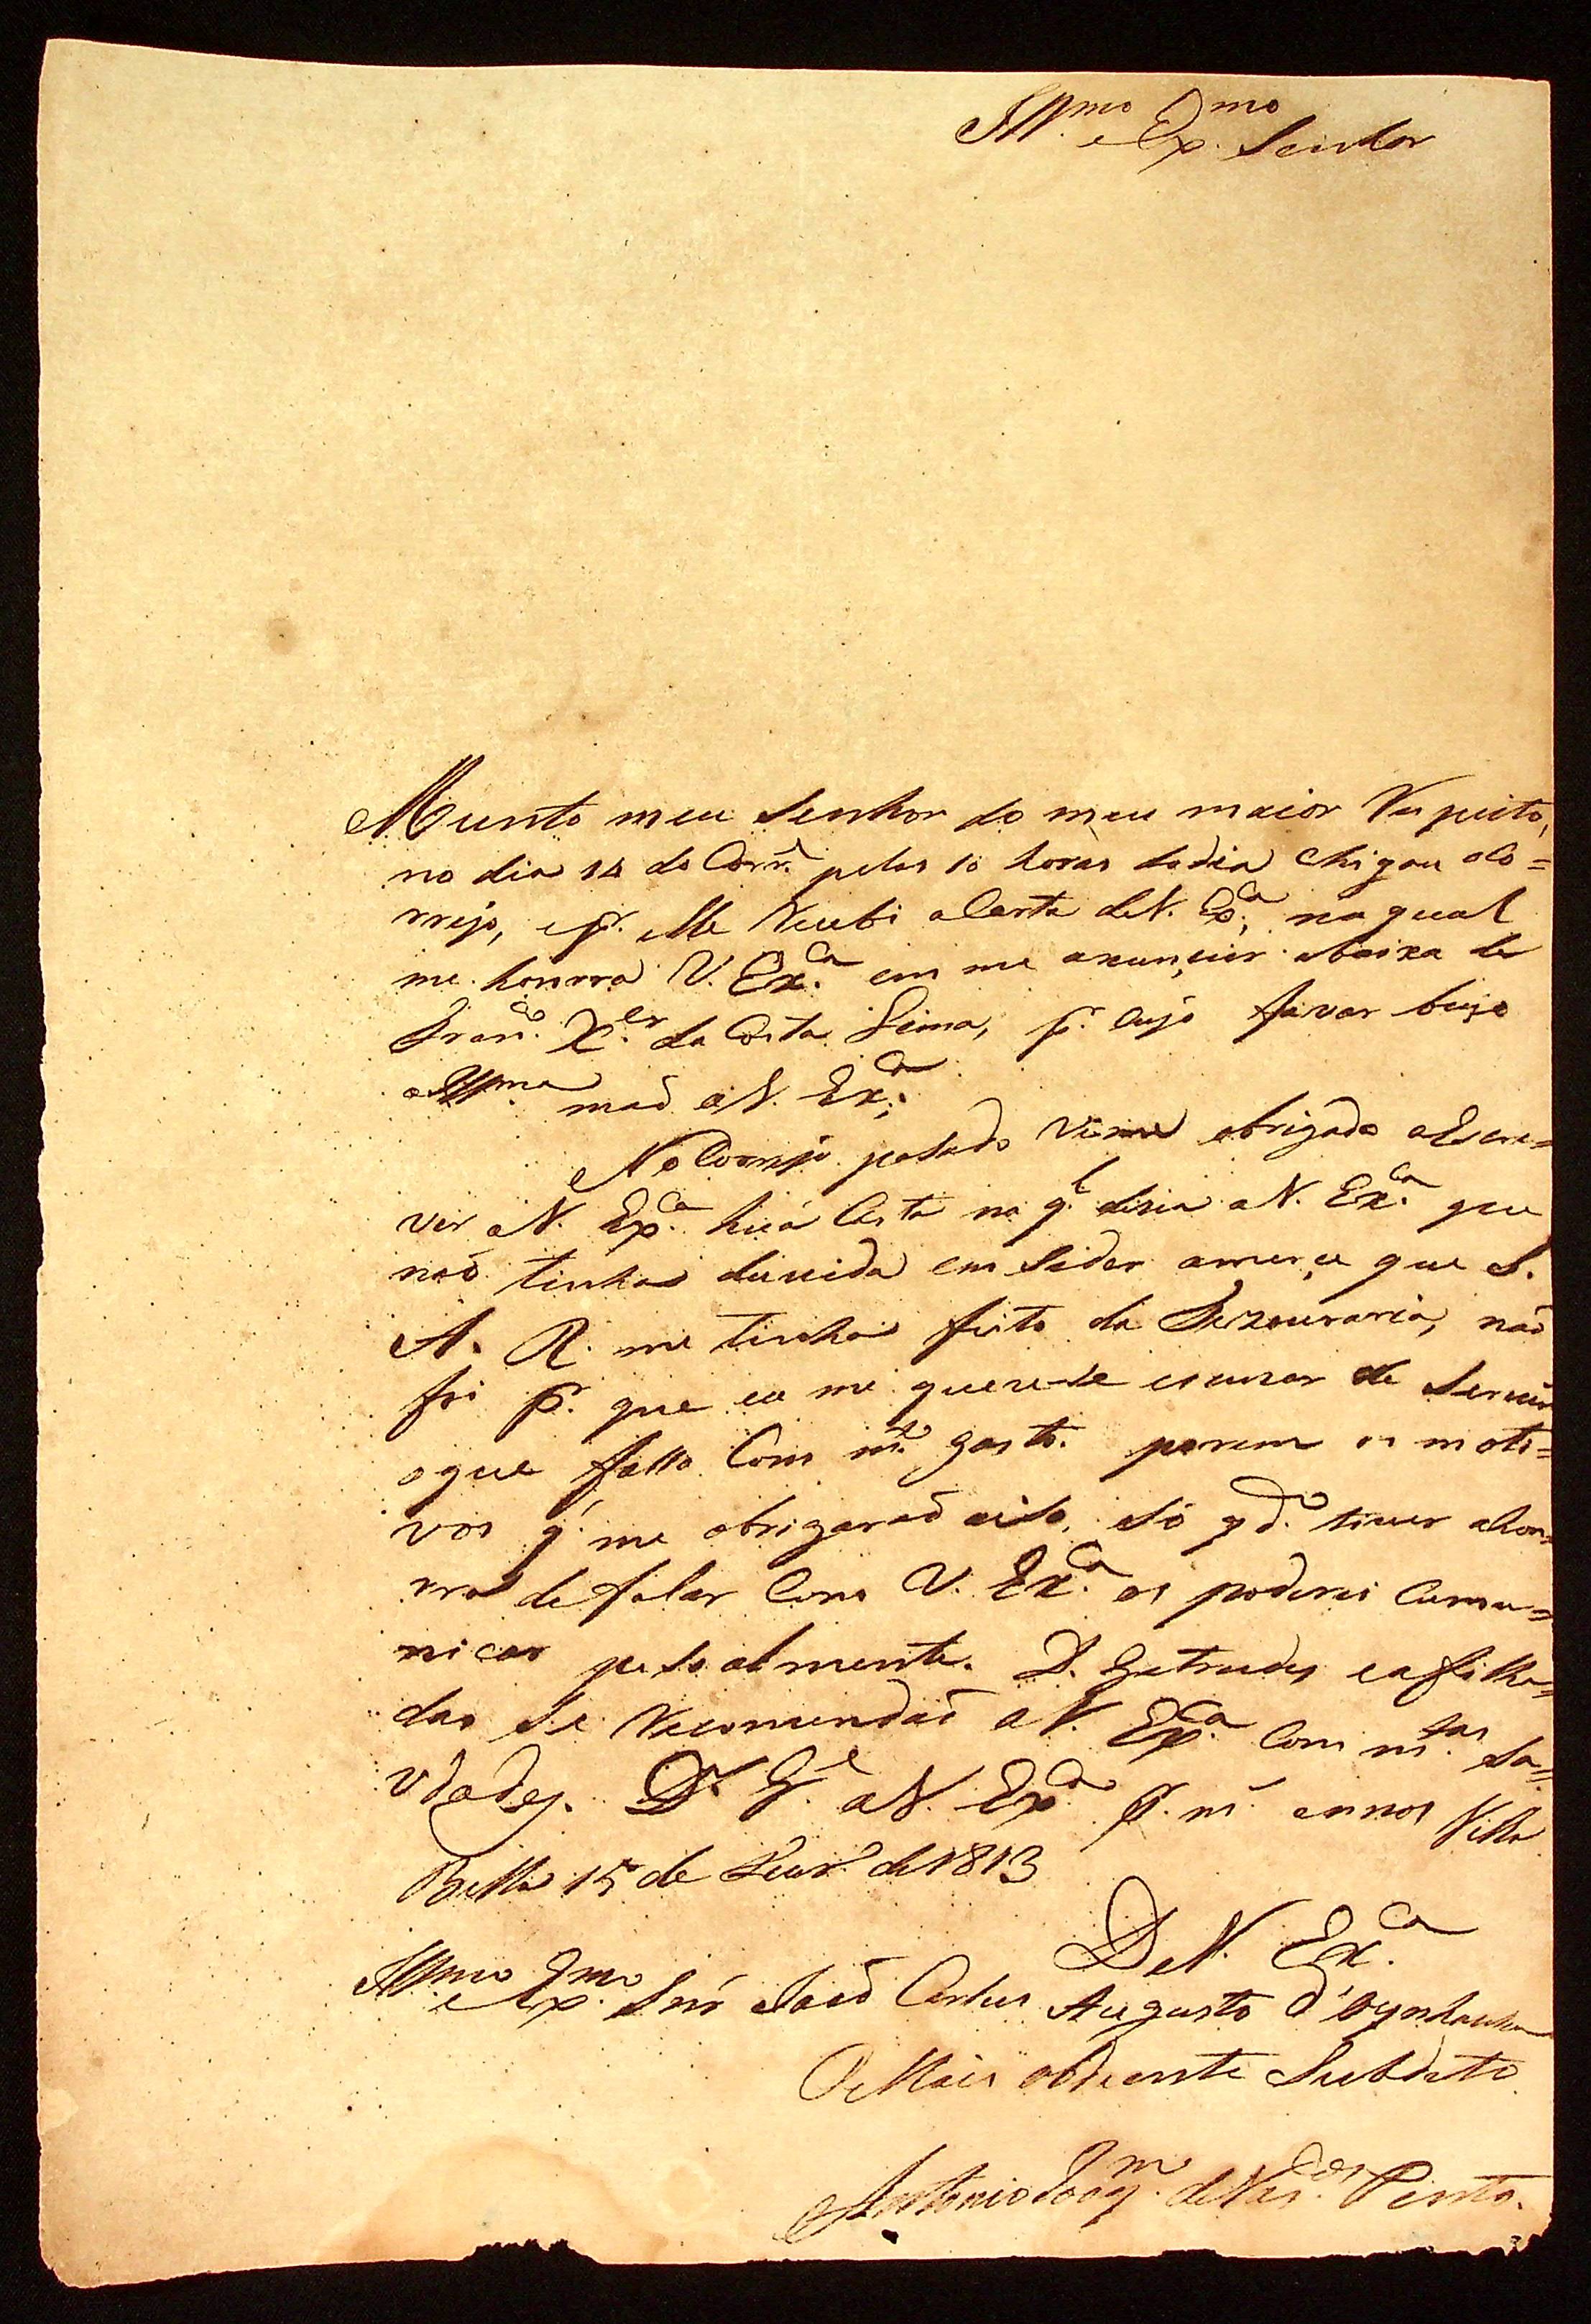 Ill.mo e Ex.mo Senhor
Munto meu Senhor do meu maior Respeito,
no dia 14 do Corr.e pelas 10 horas dodia chigou olo=
rrejo, e p.r elle Recebi aCarta deV. Ex.ca, na qual
me honrra V. Ex.ca em me anunçiar abaixa de
Fran.co X.er da Costa Lima, p.r cujo favor beijo
a Ill.ma maõ aV. Ex.ca
No Correjo pasado vime obrigado aEscre=
ver aV. Ex.ca huã Carta na q.l disia aV. Ex.ca que
naõ tinha duuida em Seder amerçe que S.
A. R. me tinha feito da Tezouraria, naõ
foi p.r que eu me querese escuzar de Seruir
oque fasso Com m.to gosto. porem os moti=
vos q' me obrigaraõ aiso, só q.do tiuer ahon=
rra defalar Com V. Ex.ca os poderei Comu=
nicar pesoalmente. D. Getrudes eafilha=
das se Recomendaõ aV. Ex.ca Com m.tas Sa=
vdades. D.s G.e aV. Ex.ca p.r m.s annos Villa
Bella 15 de Feur.o de1813
DeV. Ex.ca
Ill.mo e Ex.mo Snr Joaõ Carlos Augusto d'Oynhausen
OeMais obdiente Subdito
Antonio Joaq.m deVas.cos Pinto.